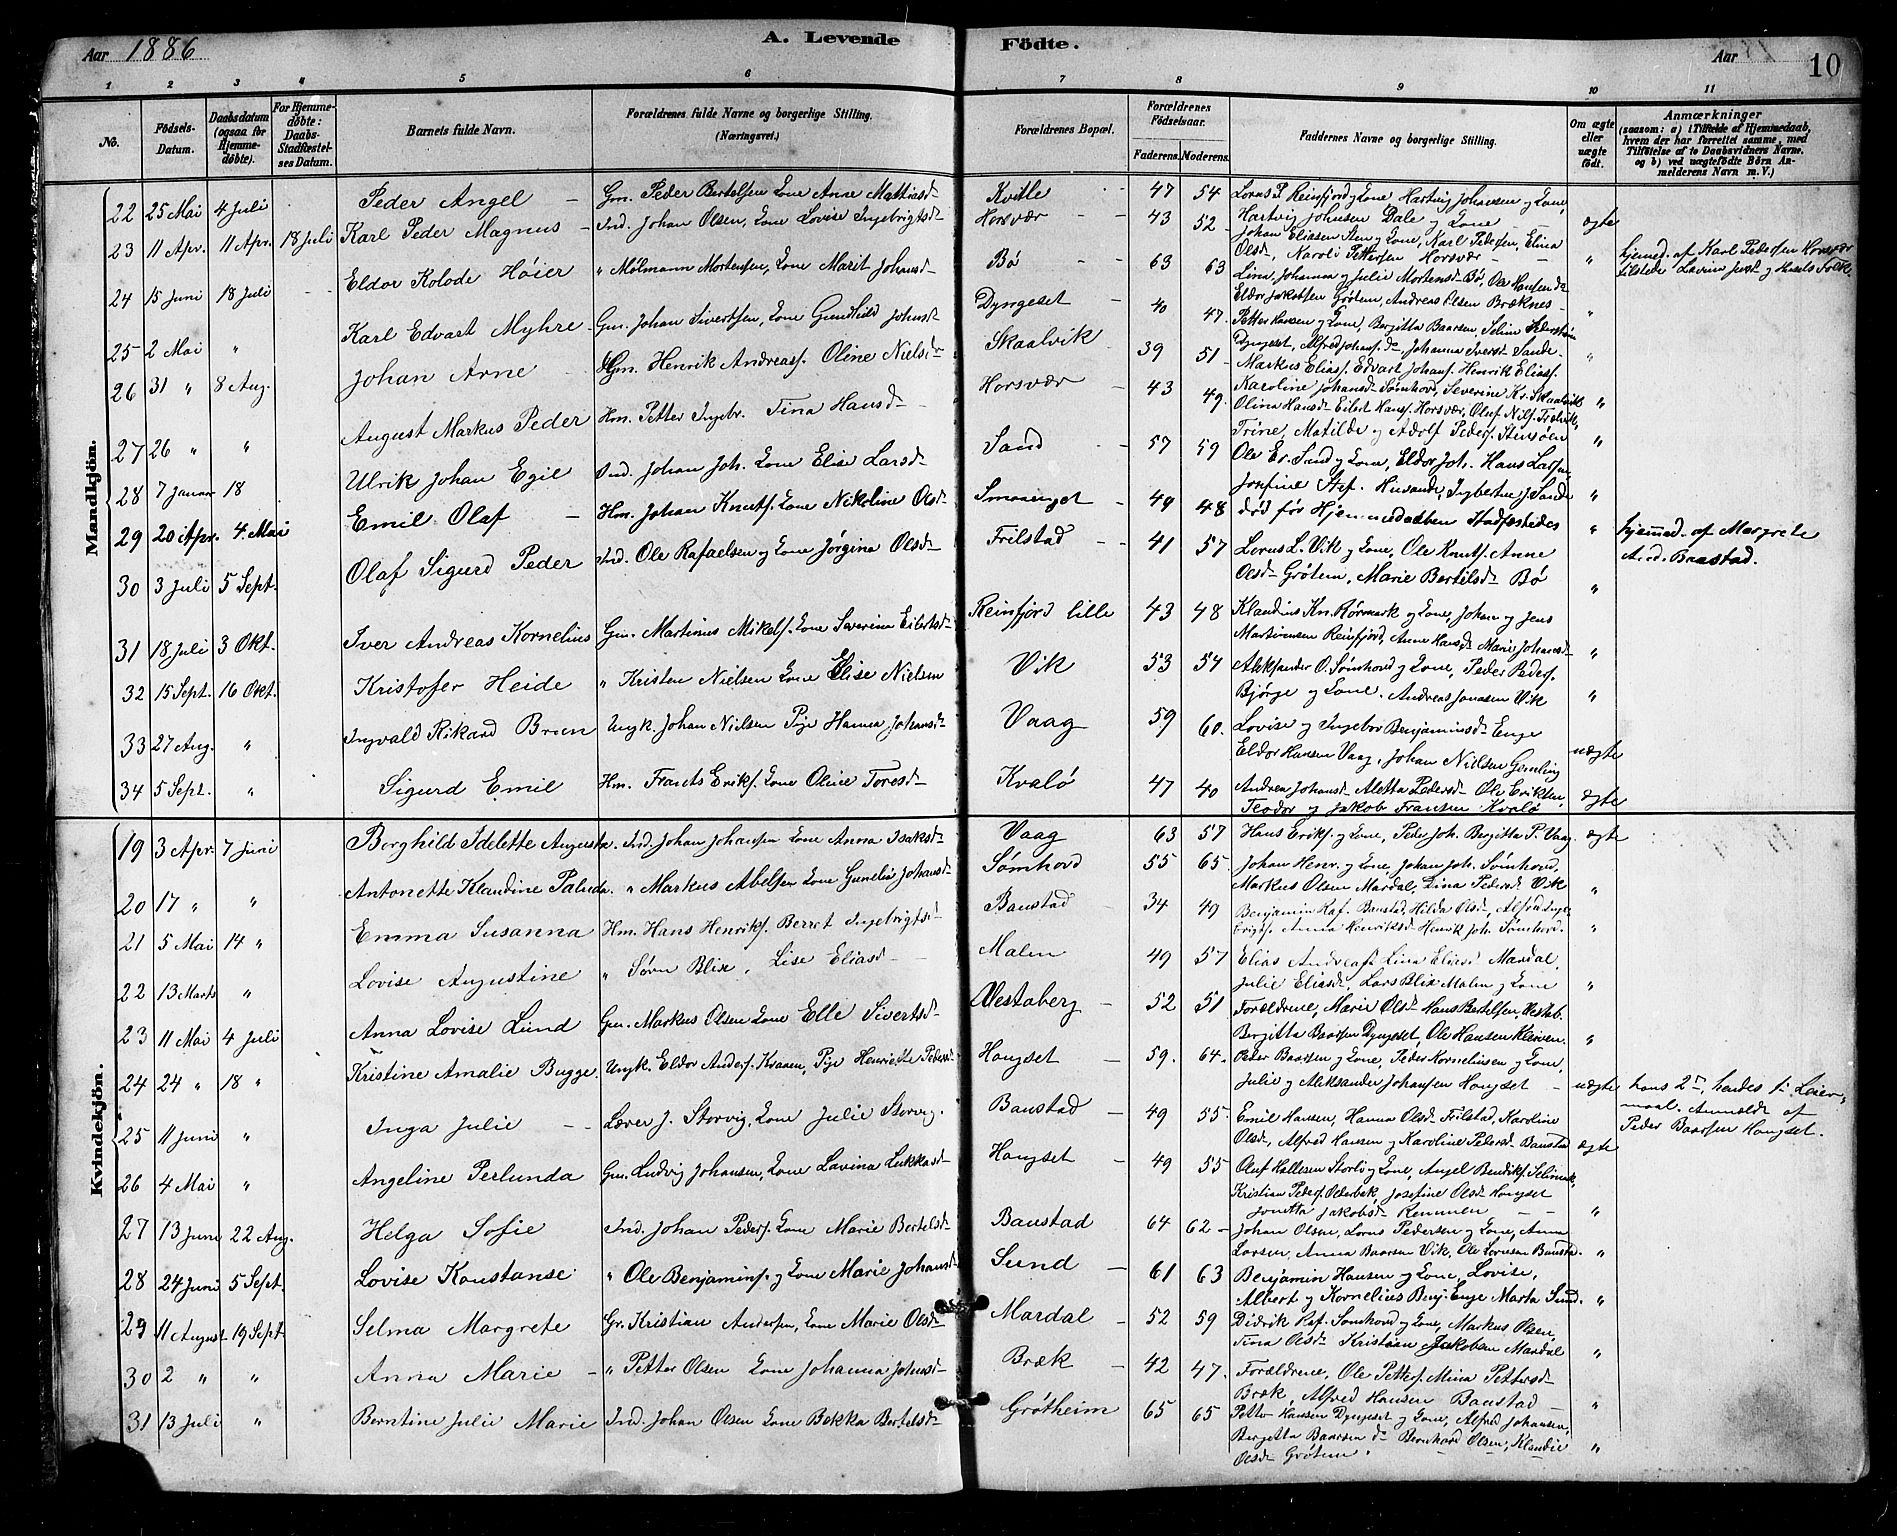 Aar 1886 A. Levende Fødte. Aar 10
1 2 3 4 5 6 7 8 9 10 11
No. Fødsels-Datum. Daabsdatum (ogsaa for Hjemmedøbte). For Hjemmedøbte: Daabs-Stadfæstelses Datum. Barnets fulde Navn. Forældrenes fulde Navne og borgerlige Stilling. (Næringsvei.) Forældrenes Bopæl. Forældrenes Fødselsaar. Faderens. Moderens. Faddernes Navne og borgerlige Stilling. Om ægte eller uægte født. Anmærkninger (saasom: a) i Tilfælde af Hjemmedaab, hvem der har forrettet samme, med Tilføielse af to Daabsvidners Navne. og b) ved uægtefødte Børn Anmelderens Navn m. V.)
Mandkjøn.
22 25 Mai 4 Juli Peder Angel - Gm. Peder Bertelsen, Kone Anne Mattiasd- Kvitle 47 54 Lorns P. Reinfjord og Kone, Hartvig Johansen og Kone,
Hartvig Johnsen Dale og Kone - ægte
23 11 Apr. 11 Apr. 18 Juli Karl Peder Magnus - Ind. Johan Olsen, Kone Lovise Ingebrigtsd- Horsvær 43 52 Johan Eliasen Sten og Kone, Karl Pedersen, Elina
Olsd-, Naroli Pettersen Horsvær - " hjemd. af Karl Pedersen Horsvær
24 15 Juni 18 Juli Eldor Kolode Høier " Mølmann Mortensen, Kone Marit Johansd- Bø 63 63 Lina, Johanna og Julie Mortensd- Bø, Ole Hansen do
Eldor Jakobsen Grøtem, Andreas Olsen Bræknes - "
25 2 Mai " Karl Edvart Myhre - Gm. Johan Sivertsen, Kone Gunhild Johnsd- Dyngeset 40 47 Petter Hansen og Kone, Bergitta Baarsen,
Dyngeset, Alfred Johans. do, Johanna Iversd- Sande - "
26 31 " 8 Aug. Johan Arne Gm. Henrik Andreass. Oline Nielsd- Skaalvik 39 51 Markus Eliass. Edvart Johans. Henrik Eliass.
Karoline Johansd- Sømhovd, Severine Kr. Skaalvik "
27 26 " " August Markus Peder Hm. Petter Ingebr. Tina Hansd- Horsvær 43 49 Olina Hansd- Eilert Hans. Horsvær, Oluf Nils.
Trine, Matilde og Adolf Peders. "
28 7 Januar 18 Ulrik Johan Egil Ind. Johan Joh. Kone Elise Larsd- Sand 57 59 Ole Er. Sand og Kone, Eldor Joh. Hans Larsen,
Josefine Stef. Sande "
29 20 Apr. 4. Mai Emil Olaf - Hm. Johan Knuts. Kone Nikoline Olsd- Smaaenget 49 48 død før Hjemmedaaben Stadfæstedes " hjemmed. af Margrete
And. Baastad.
30 3 Juli 5 Sept. Olaf Sigurd Peder Ind. Ole Rafaelsen og Kone Jørgina Olsd- Frilstad 41 57 Lorns L. Vik og Kone, Ole Knuts. Anne
Olsd- Grøtem, Marie Bertilsd- Bø "
31 18 Juli 3 Okt. Iver Andreas Kornelius Gm. Martinus Mikels. Kone Saverina Eilertsd- Reinfjord lille 43 48 Klaudius Kn. Rørmark og Kone, Johan og Jens
Martinusen Reinfjord, Anne Hansd- Marie Johansd- "
32 15 Sept. 16 Okt. Kristofer Heide " Kristen Nielsen Kone Elise Nielsen Vik 53 54 Aleksander O. Sømhovd og Kone, Peder Peders.
Bjørge og Kone. Andreas Jonasen Vik "
33 27 Aug. " Ingvald Rikard Breen Ungk. Johan Nielsen Pige Hanna Johansd- Vaag 59 60 Lovise og Ingebor Benjaminsd- Enge
Eldor Hansen Vaag, Johan Nielsen uægte
34 5 Sept. " Sigurd Emil Hm. Frants Eriks. Kone Oline Toresd- Kvalø 47 40 Andrea Johansd- Aletta Pedersd- Ole Eriksen,
Teodor og Jakob Fransen Kvalø ægte
Kvindekjøn.
19 3 Apr. 7 Juni Borghild Idelette Augusta Ind. Johan Johansen Kone Anna Isaksd- Vaag 63 57 Hans Eriks. og Kone, Peder Joh. Bergitta P. Vaag. ægte
20 17 " " Antonette Klaudine Palnda " Markus Abelsen Kone Gunelia Johansd- Sømhovd 55 65 Johan Henr. og Kone, Johan Joh. Sømhovd,
Markus Olsen Mardal, Lina Pedersd- Vik "
21 5 Mai 14 " Emma Susanna Hm. Hans Henriks. Berret Ingebrigtsd- Baustad 34 49 Benjamin Raf. Baustad, Hilda Olsd-, Alfred Inge-
brigts. Anna Henriksd- Henrik Joh. Sømhovd. "
22 13 Marts " Lovise Augustine " Sørn Blix, Lise Eliasd- Malen 49 57 Elias Andreass. Lina Eliasd- Mardal,
Julie Eliasd-, Lars Blix Malen og Kone "
23 11 Mai 4 Juli Anna Lovise Lund Gm. Markus Olsen Kone Elle Sivertsd- Vestaberg 52 51 Forældrene, Marie Olsd- Hans Bertelsen Vestab.
Bergitta Baarsen Dyngeset, Ole Hansen Kleiven. "
24 24 " 18 " Kristine Amalie Bugge. Ungk. Eldor Anders. Kvaaen, Pige Henriette Pedersd- Hongset 59. 64. Peter Baarsen og Kone, Peder Kornelinsen og Kone,
Julie og Aleksander Johansen Hongset - uægte hans 2den, hendes 1ste Leier-
maal. Anmeldt af
25 11 Juni " Inga Julie Lærer J. Storvig, Kone Julie Storvig. Baustad 49 55 Emil Hansen, Hanna Olsd- Frilstad, Karoline Peder Baarsen Hongset.
Olsd-, Alfred Hansen og Karoline Pedersd- Baustad ægte
26 4 Mai " Angeline Perlunda Gm. Ludvig Johansen, Kone Lavina Lukkasd- Hongset 49 55 Oluf Hallesen Storli og Kone, Angel Bendiks.
Kristian Peders. Olderbæk, Josefine Olsd- Hongset
Jonetta Jakobsd- Remmen "
27 13 Juni 22 Aug. Helga Sofie Ind. Johan Peders. Kone Marie Bertelsd- Baustad 64 62 Johan Olsen, Lorns Pedersen og Kone, Anna
Larsen, Anna Baarsen Vik, Ole Lornsen Bausta. "
28 24 Juni 5 Sept. Lovise Konstanse " Ole Benjamins. og Kone Marie Johansd- Sund 61 63 Benjamin Hansen og Kone, Lovise,
Albert og Kornelius Benj. Enge Marta Sund. "
29 11 August 19 Sept. Selma Margrete Gr. Kristian Andersen, Kone Marie Olsd- Mardal 52 59 Didrik Raf. Sømhovd og Kone, Markus Olsen,
Tina Olsd- Kristian Jakobsen Mardal "
30 2 " " Anna Marie - " Petter Olsen Kone Johanna Johnsd- Bræk 42 47. Forældrene, Ole Petters. Mina Pettersd-
Bræk, Alfred Hansen Baastad "
31 13 Juli " Berntine Julie Marie Ind. Johan Olsen Kone Bekka Bertelsd- Grøtheim 65 65 Petter Hansen Dyngeset og Kone, Alfred Johansen,
Bergetta Baarsen do Bernhard Olsen, Klaudie
Olsd- Grøtem. "